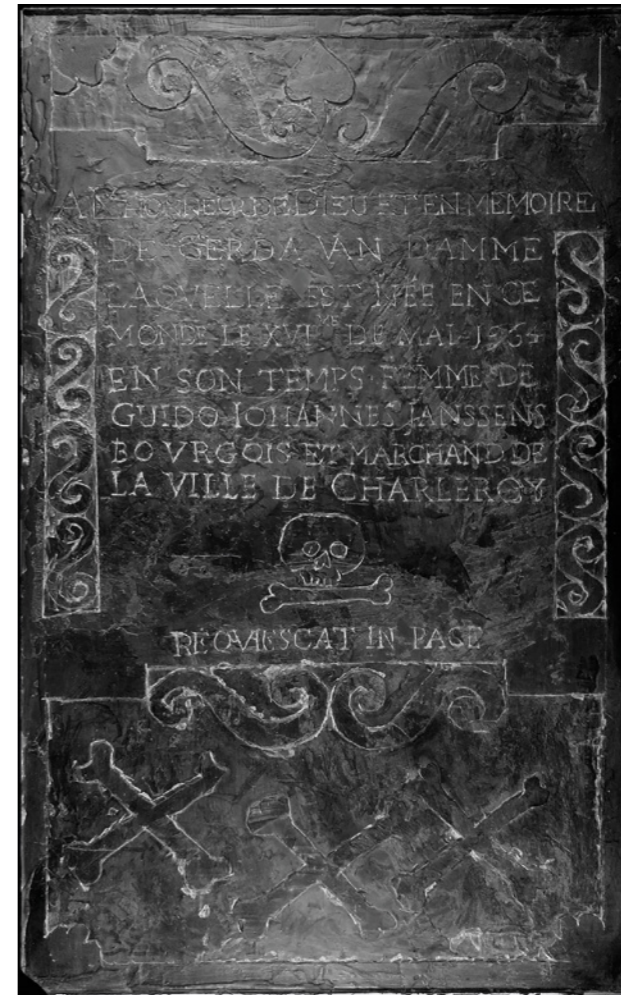 A L'HONNEUR DE DIEU ET EN MEMOIRE
DE GERDA VAN DAMME
LAQVELLE EST NÉE EN CE
MONDE LE XVI ME DE MAI 1964
EN SON TEMPS FEMME DE
GUIDO IOHANNES JANSSENS
BOVRGOIS ET MARCHAND DE
LA VILLE DE CHARLEROY
REQVIESCAT IN PACE